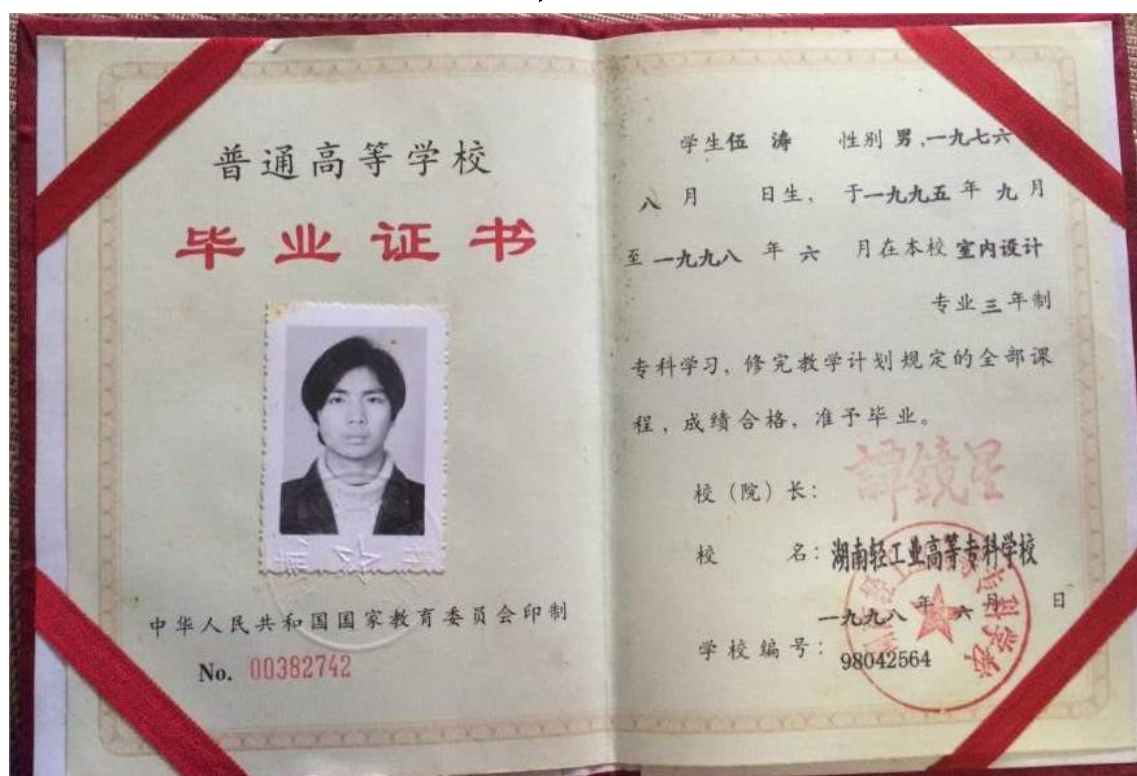 普通高等学校
毕业证书
中华人民共和国国家教育委员会印制
No. 00382742
学生伍 涛 性别 男,一九七六
八 月 日生, 于一九九五 年 九 月
至 一九九八 年 六 月在本校 室内设计
专业 三 年制
专科学习, 修完教学计划规定的全部课
程, 成绩合格, 准予毕业。
校(院)长: 譚鏡星
校 名: 湖南轻工业高等专科学校
一九九八 年 六 月 日
学校编号: 98042564